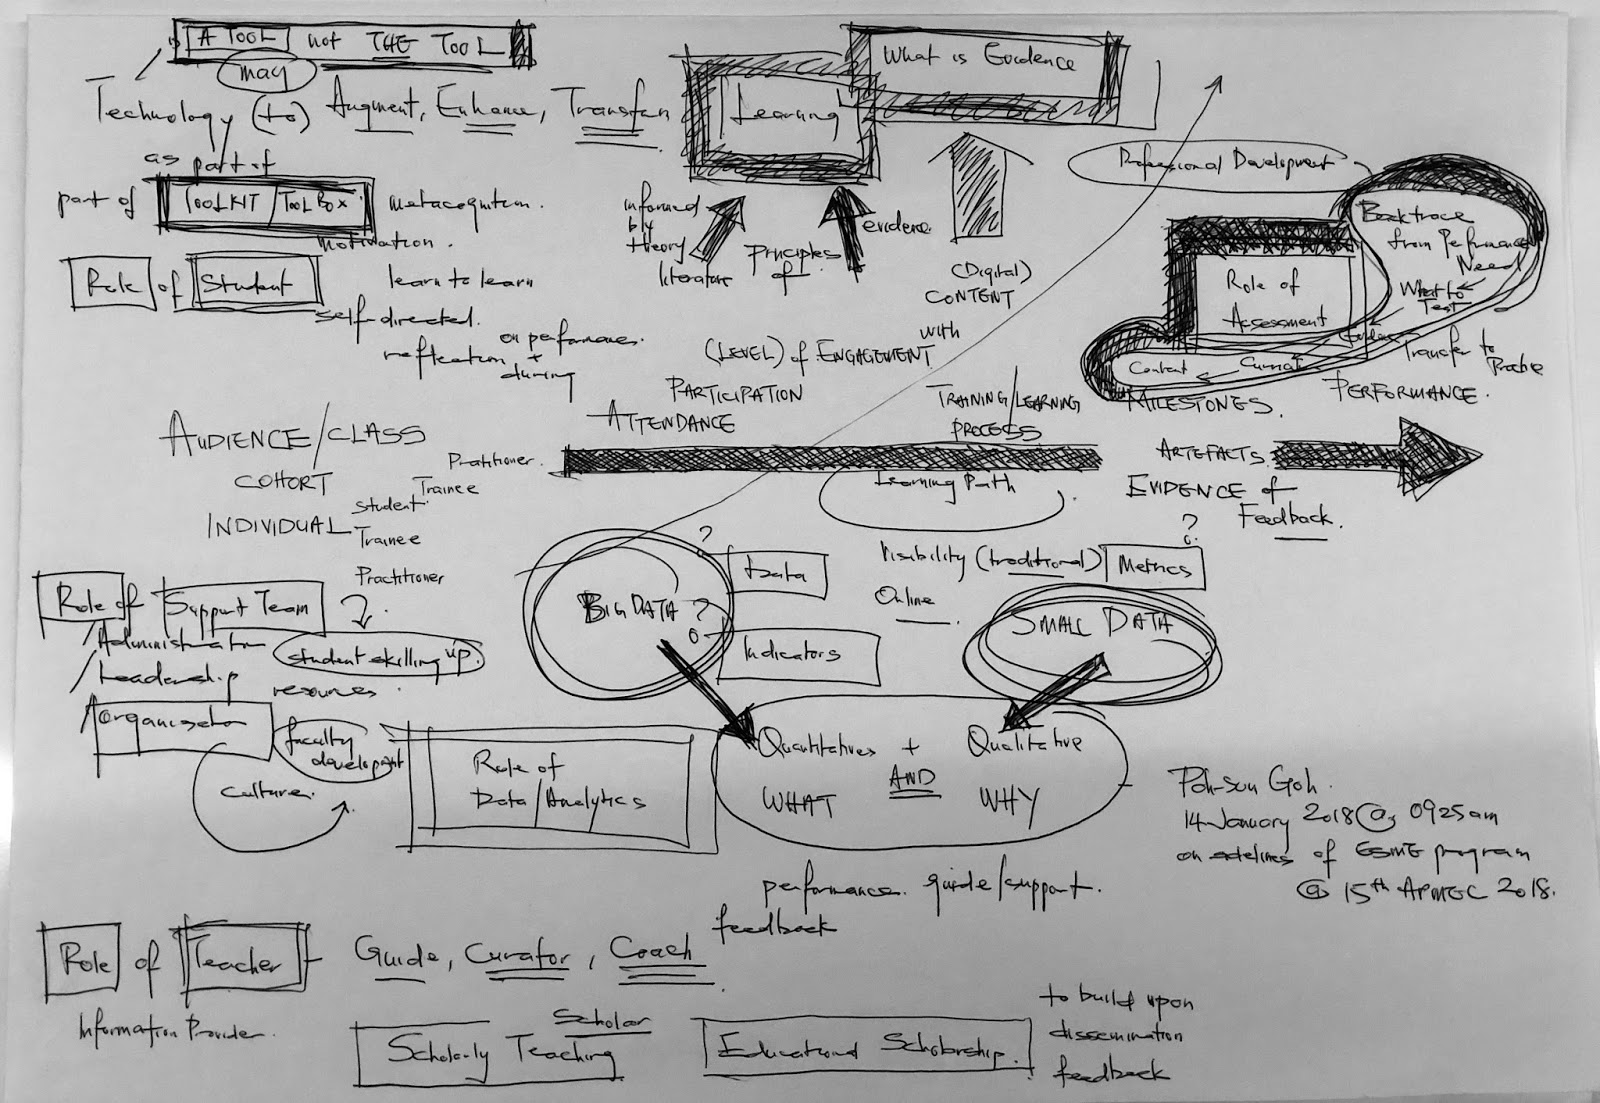 A TOOL not THE TOOL
may
Technology (to) Augment, Enhance, Transfer
as part of
part of TOOLKIT/TOOLBOX
metacognition.
motivation.
Role of Student
learn to learn
self-directed.
reflection on performance.
+
during
Learning
What is Evidence
informed
by
theory
literature
Principles
of
evidence.
(Digital)
CONTENT
with
Professional Development
Backtrace
from Performance
Need
What to
Test
Role of
Assessment
Content
Transfer to
Practice
(LEVEL) of ENGAGEMENT
PARTICIPATION
ATTENDANCE
TRAINING/LEARNING
PROCESS
MILESTONES.
PERFORMANCE.
AUDIENCE/CLASS
COHORT
INDIVIDUAL
Practitioner.
Trainee
Student.
Trainee
Practitioner
Learning Path
ARTEFACTS.
EVIDENCE of
Feedback.
?
Visibility (traditional) Metrics
Online
BIG DATA
?
?
Data
Indicators
SMALL DATA
Role of Support Team
/Administration
/Leadership
/organisation
student skilling up.
resources.
faculty
development
culture.
Role of
Data/Analytics
Quantitative + Qualitative
WHAT AND WHY
performance. guide/support.
feedback
Poh-Sun Goh.
14 January 2018 @ 0925am
on sidelines of ESME program
@ 15th APMEC 2018.
Role of Teacher
Guide, Curator, Coach
Information Provider.
Scholar
Scholarly Teaching
Educational Scholarship.
to build upon
dissemination
feedback